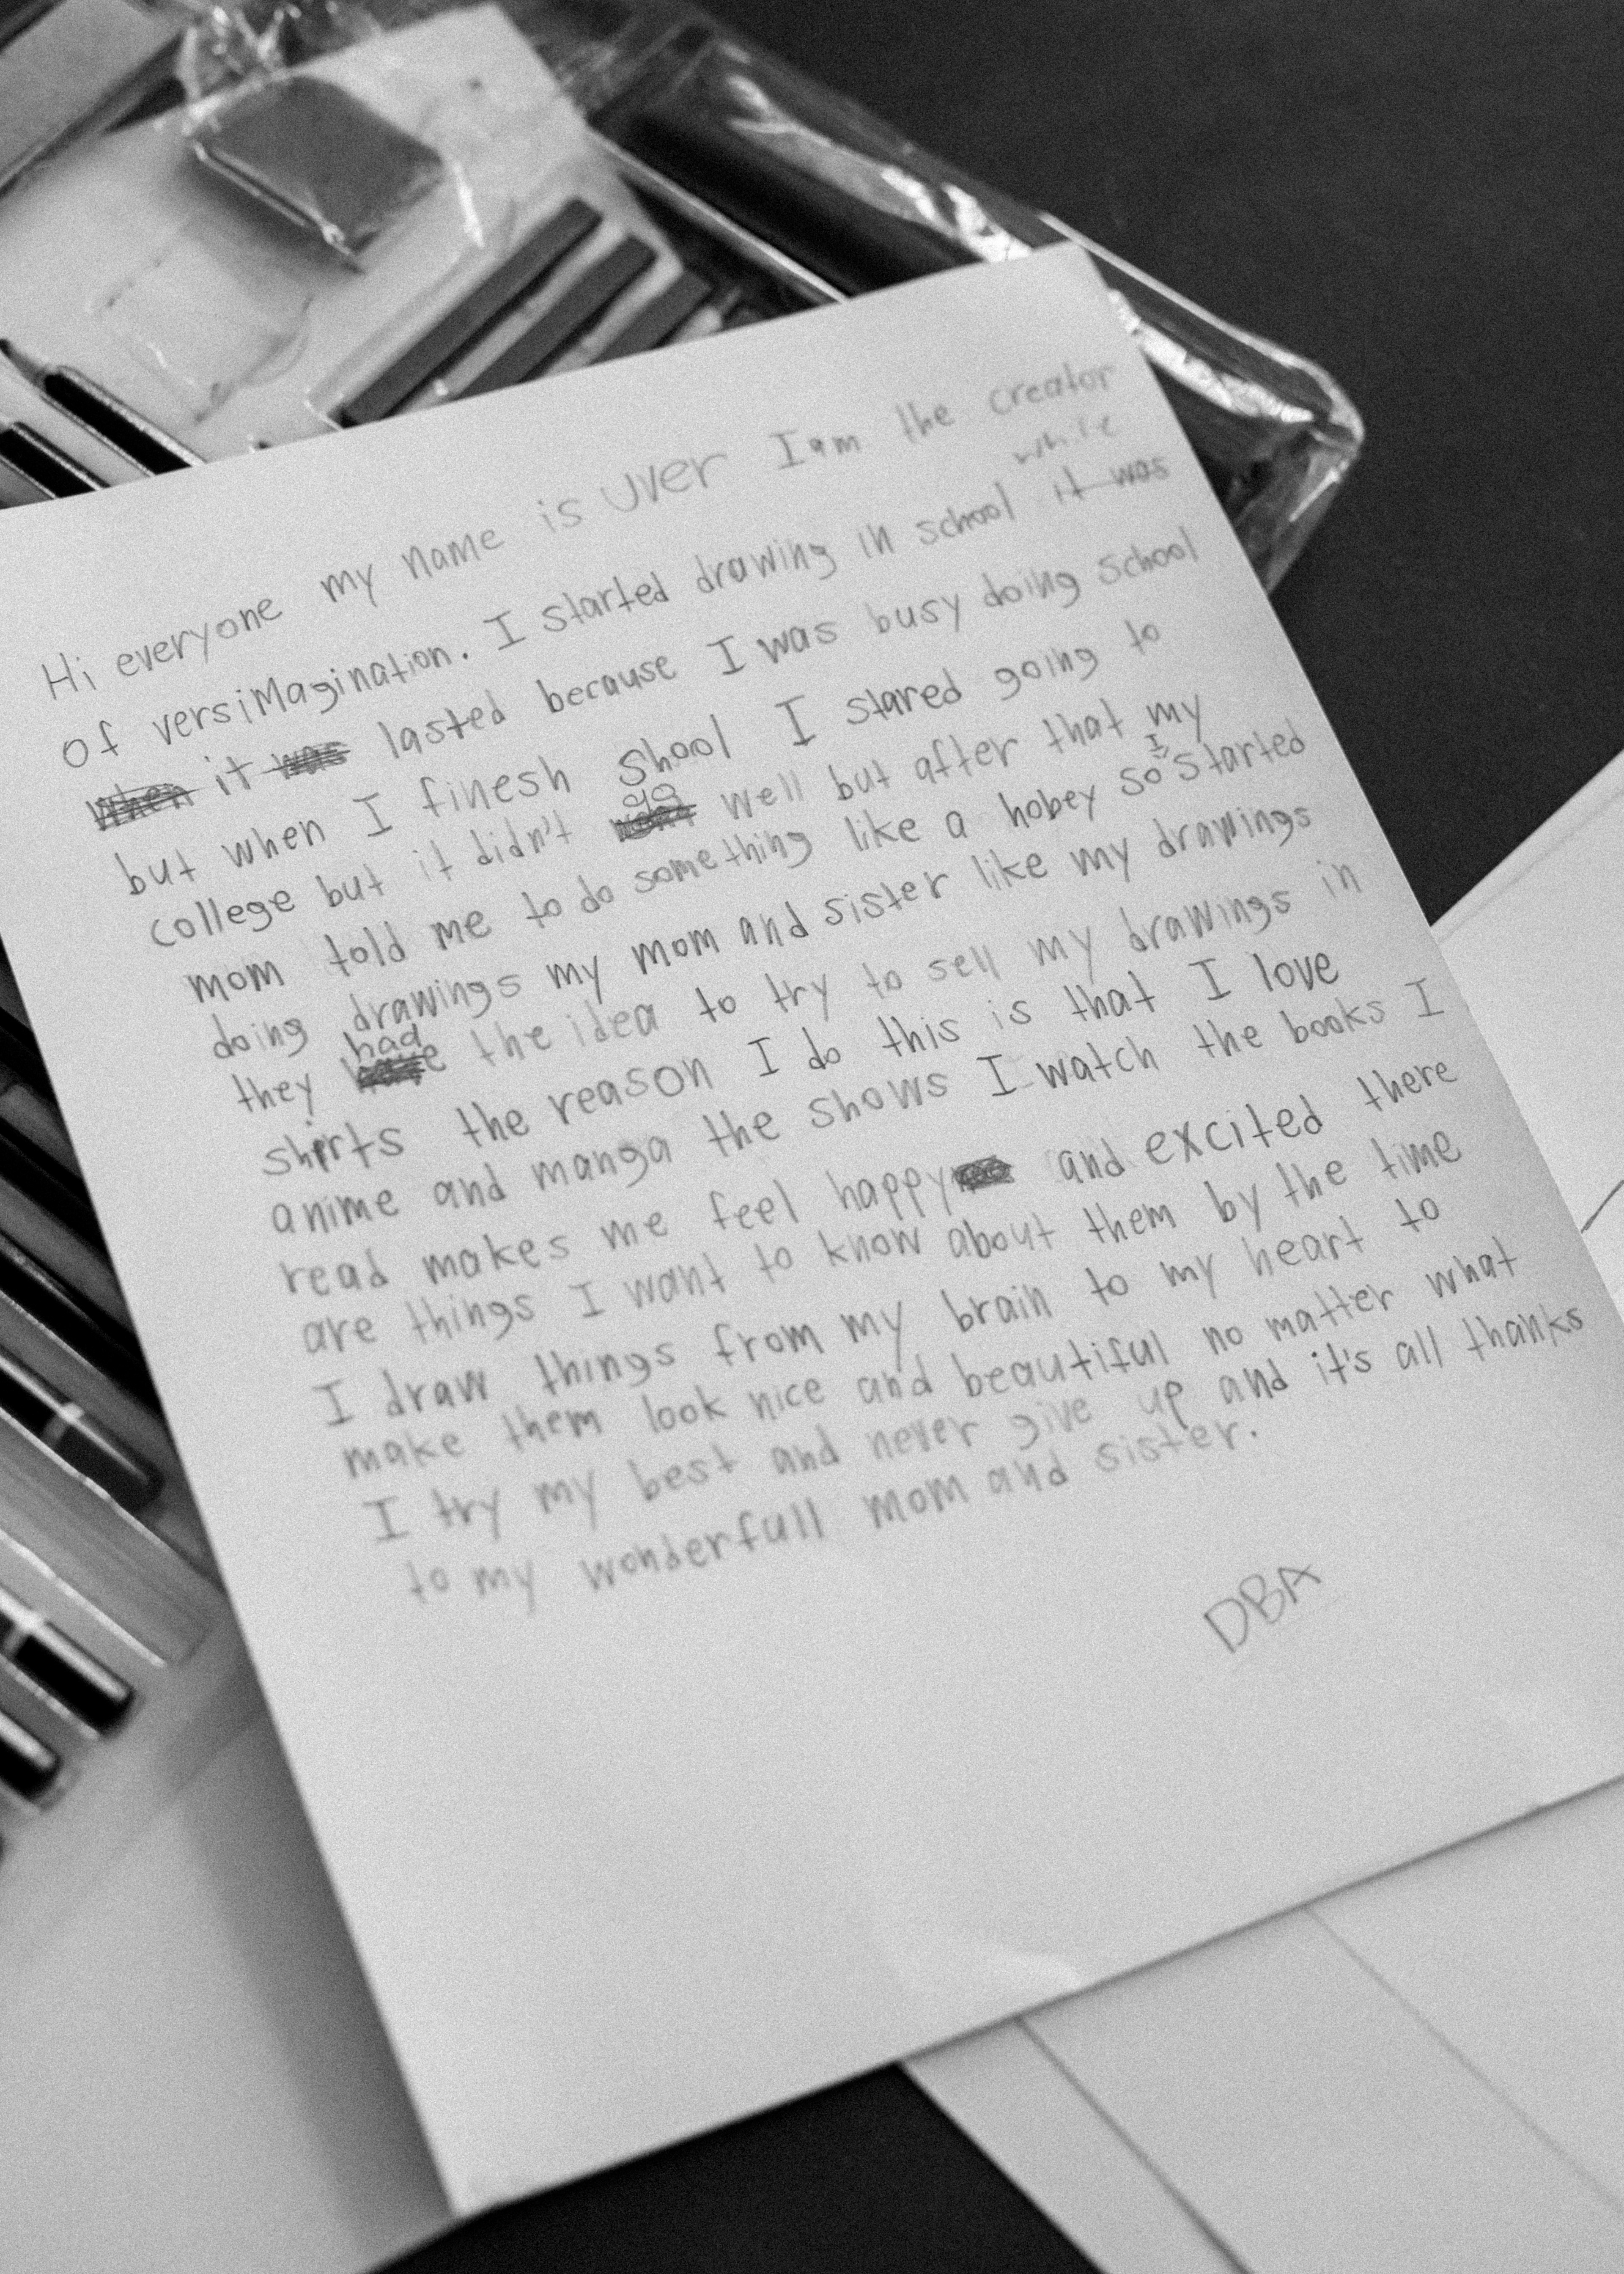 Hi everyone my name is UVER I am the creator
of versimagination. I started drawing in school while it was
when it was lasted because I was busy doing school
but when I finesh shool I stared going to
college but it didn't go well but after that my
mom told me to do something like a hobey so I started
doing drawings my mom and sister like my drawings
they had the idea to try to sell my drawings in
shirts the reason I do this is that I love
anime and manga the shows I watch the books I
read makes me feel happy and excited there
are things I want to know about them by the time
I draw things from my brain to my heart to
make them look nice and beautiful no matter what
I try my best and never give up and it's all thanks
to my wonderfull mom and sister.
DBA